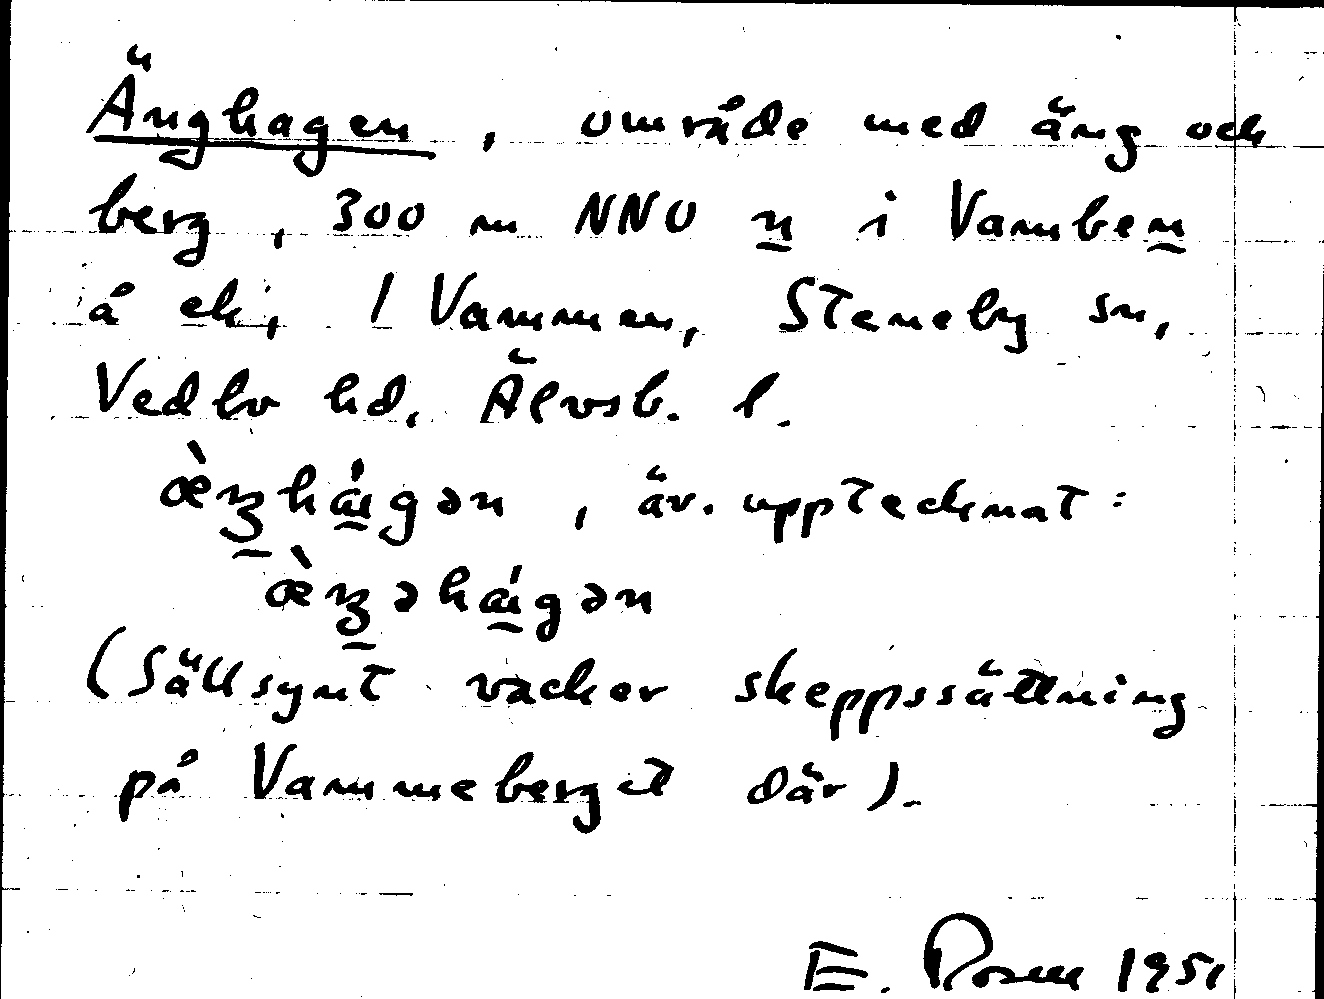 Änghagen, område med äng och
berg, 300 m NNO n i Vamben
å ek, 1 Vammen, Steneby sn,
Vedbo hd, Älvsb. l.
æ̀ŋhágən, äv. upptecknat:
æ̀ŋəhágən
(Sällsynt vacker skeppssättning
på Vammeberget där).
E. Rosell 1951